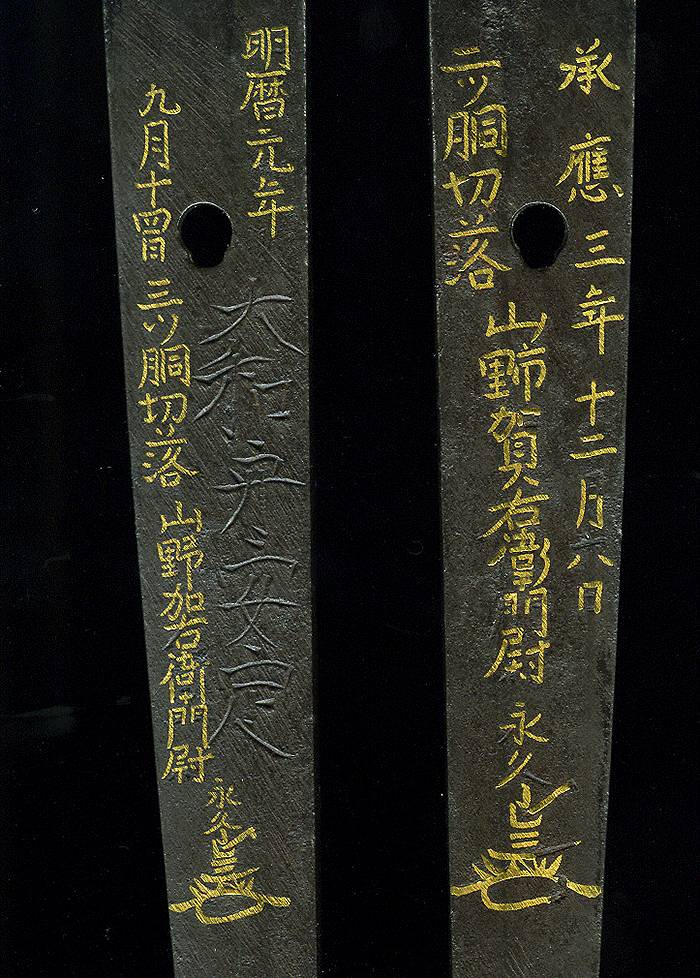 承應三年十二月六日
二ツ胴切落
山野賀右衛門尉
永久
明暦元年
大和守安定
九月十四日三ツ胴切落
山野加右衛門尉
永久